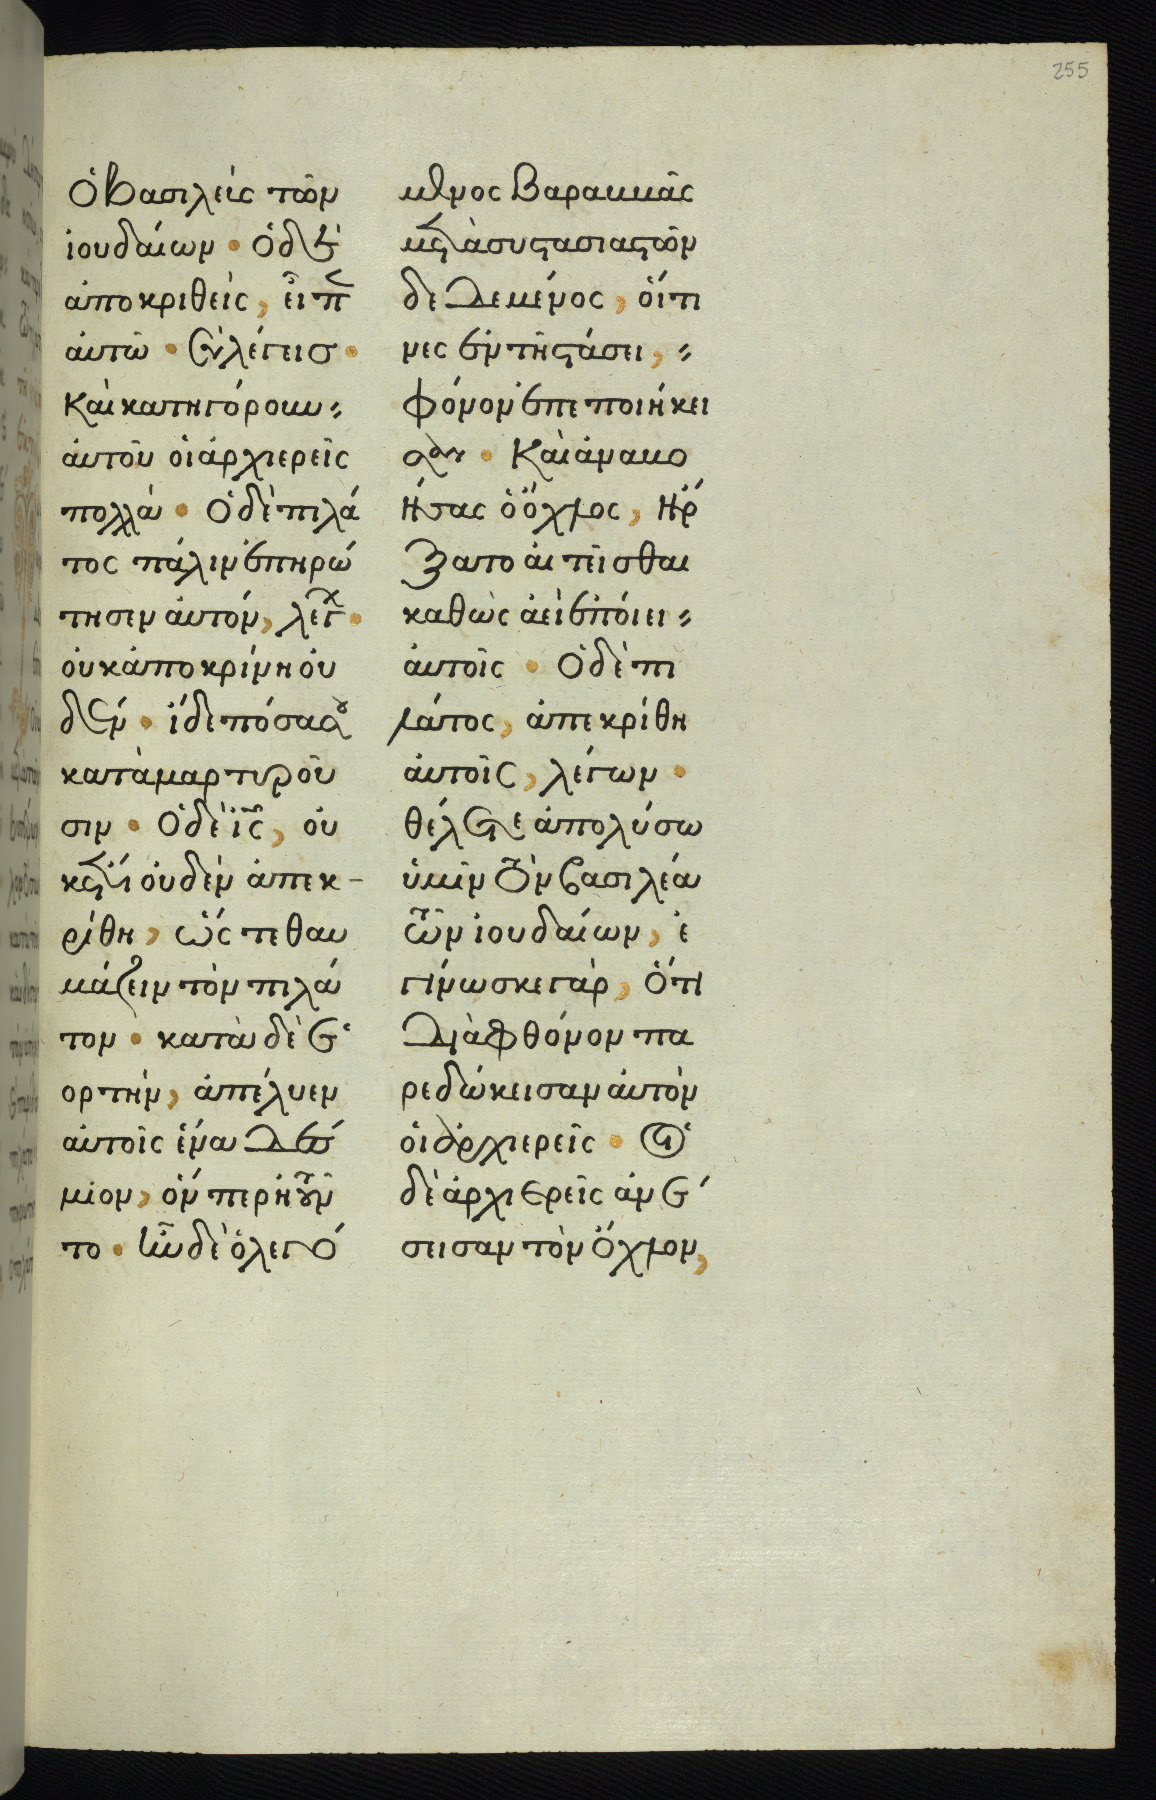 255
ὁ βασιλεὺς τῶν
ἰουδαίων · ὁ δὲ
ἀποκριθεὶς, εἶπεν
αὐτῶ · σὺ λέγεισ ·
Καὶ κατηγόρουν
αὐτοῦ οἱ ἀρχιερεῖς
πολλὰ · Ὁ δὲ πιλά
τος πάλιν ἐπηρώ
τησεν αὐτόν, λέγων ·
οὐκ ἀποκρίνη οὐ
δέν · ἴδε πόσα σου
καταμαρτυροῦ
σιν · Ὁ δὲ ἰς, οὐ
κέτι οὐδὲν ἀπεκ-
ρίθη, ὥς τε θαυ
μάζειν τὸν πιλά
τον · κατὰ δὲ ἑ
ορτὴν, ἀπέλυεν
αὐτοῖς ἕνα δέσ
μιον, ὅν περ ἠτοῦν
το · ἦν δὲ ὁ λεγό
μενος Βαραμμᾶς
μετὰ συστασιαστῶν
δεδεμένος, οἵτι
νες ἐν τῇ στάσει,
φόνον ἐπεποιήκει
σαν · Καὶ ἀναβο
ήσας ὁ ὄχλος, ἤρ
ξατο αἰτεῖσθαι
καθὼς ἀεὶ ἐποίει
αὐτοῖς · Ὁ δὲ πι
λάτος, ἀπεκρίθη
αὐτοῖς, λέγων ·
θέλετε ἀπολύσω
ὑμῖν τὸν βασιλέα
τῶν ἰουδαίων, ἐ
γίνωσκε γὰρ, ὅτι
διὰ φθόνον πα
ρεδώκεισαν αὐτὸν
οἱ ἀρχιερεῖς · οἱ
δὲ ἀρχιερεῖς ἀνέ
σεισαν τὸν ὄχλον,